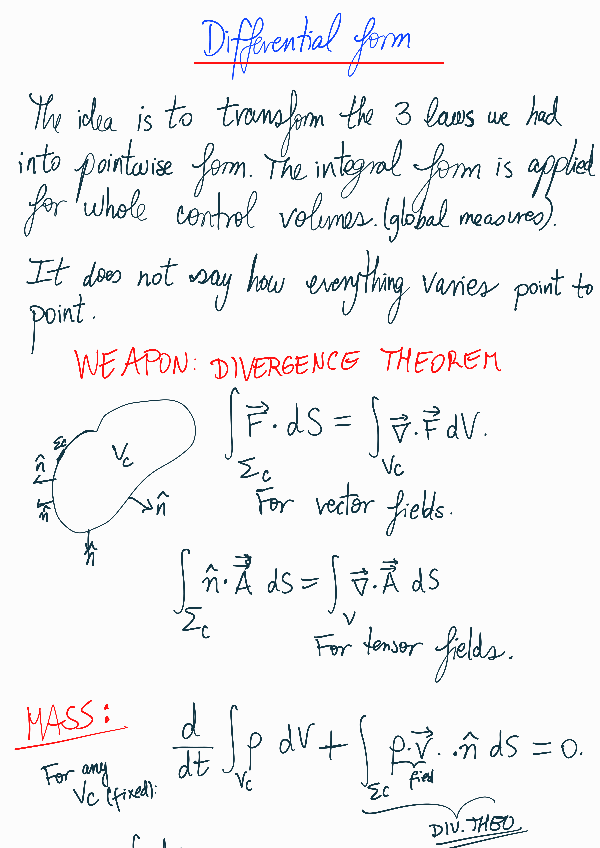 Differential form
The idea is to transform the 3 laws we had
into pointwise form. The integral form is applied
for whole control volumes. (global measures).
It does not say how everything varies point to
point.
WEAPON: DIVERGENCE THEOREM
Σc Vc n̂ n̂ n̂ n̂
∫_Σc F⃗ · dS = ∫_Vc ∇⃗ · F⃗ dV.
For vector fields.
∫_Σc n̂ · A⃗⃗ dS = ∫_V ∇⃗ · A⃗⃗ dS
For tensor fields.
MASS: d/dt ∫_Vc ρ dV + ∫_Σc ρ · v⃗ · n̂ dS = 0.
For any
Vc (fixed):
field
DIV. THEO